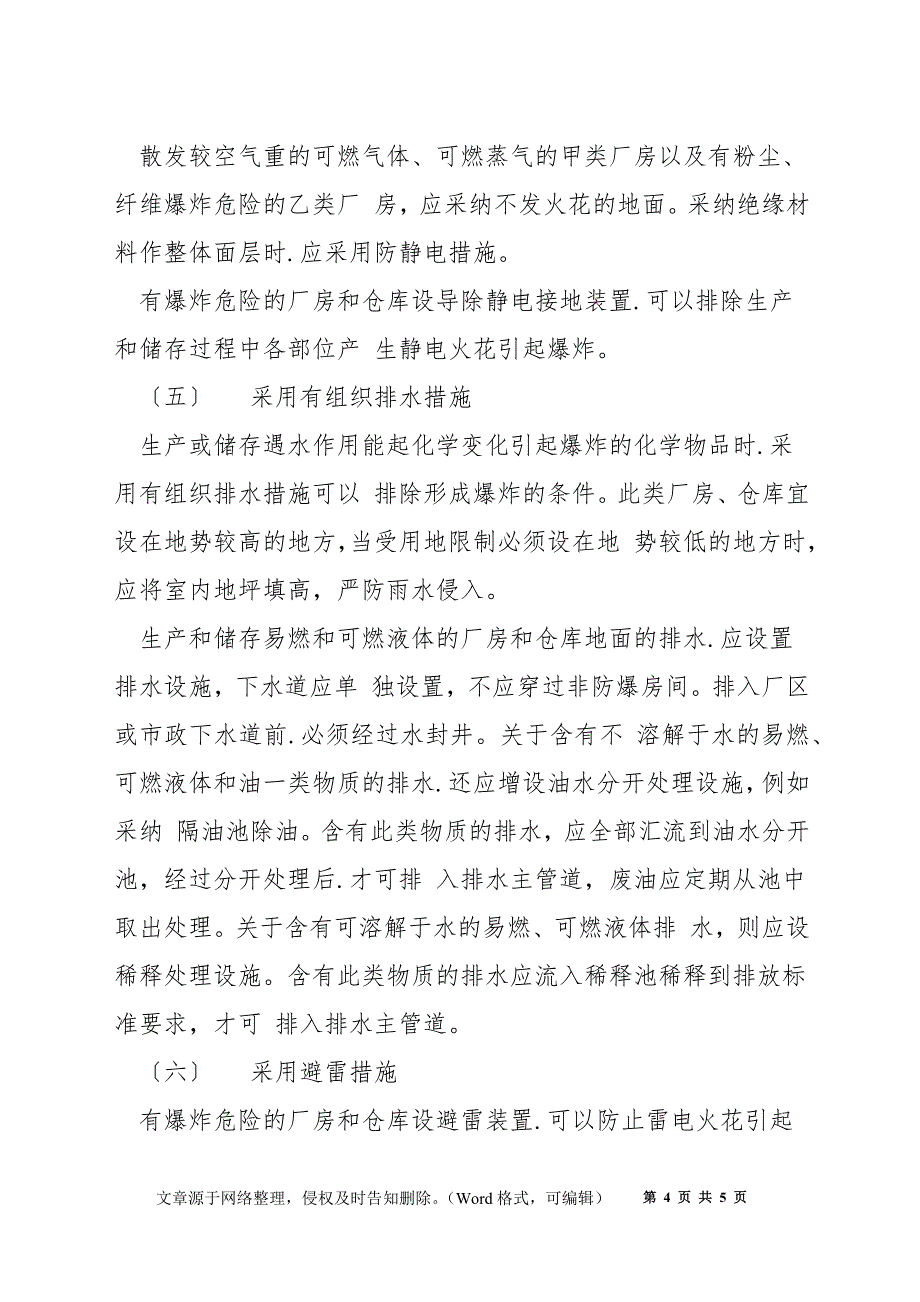 散发较空气重的可燃气体、可燃蒸气的甲类厂房以及有粉尘、
纤维爆炸危险的乙类厂 房，应采纳不发火花的地面。采纳绝缘材
料作整体面层时.应采用防静电措施。
有爆炸危险的厂房和仓库设导除静电接地装置.可以排除生产
和储存过程中各部位产 生静电火花引起爆炸。
〔五〕 采用有组织排水措施
生产或储存遇水作用能起化学变化引起爆炸的化学物品时.采
用有组织排水措施可以 排除形成爆炸的条件。此类厂房、仓库宜
设在地势较高的地方，当受用地限制必须设在地 势较低的地方时，
应将室内地坪填高，严防雨水侵入。
生产和储存易燃和可燃液体的厂房和仓库地面的排水.应设置
排水设施，下水道应单 独设置，不应穿过非防爆房间。排入厂区
或市政下水道前.必须经过水封井。关于含有不 溶解于水的易燃、
可燃液体和油一类物质的排水.还应增设油水分开处理设施，例如
采纳 隔油池除油。含有此类物质的排水，应全部汇流到油水分开
池，经过分开处理后.才可排 入排水主管道，废油应定期从池中
取出处理。关于含有可溶解于水的易燃、可燃液体排 水，则应设
稀释处理设施。含有此类物质的排水应流入稀释池稀释到排放标
准要求，才可 排入排水主管道。
〔六〕 采用避雷措施
有爆炸危险的厂房和仓库设避雷装置.可以防止雷电火花引起
文章源于网络整理，侵权及时告知删除。（Word 格式，可编辑） 第 4 页 共 5 页